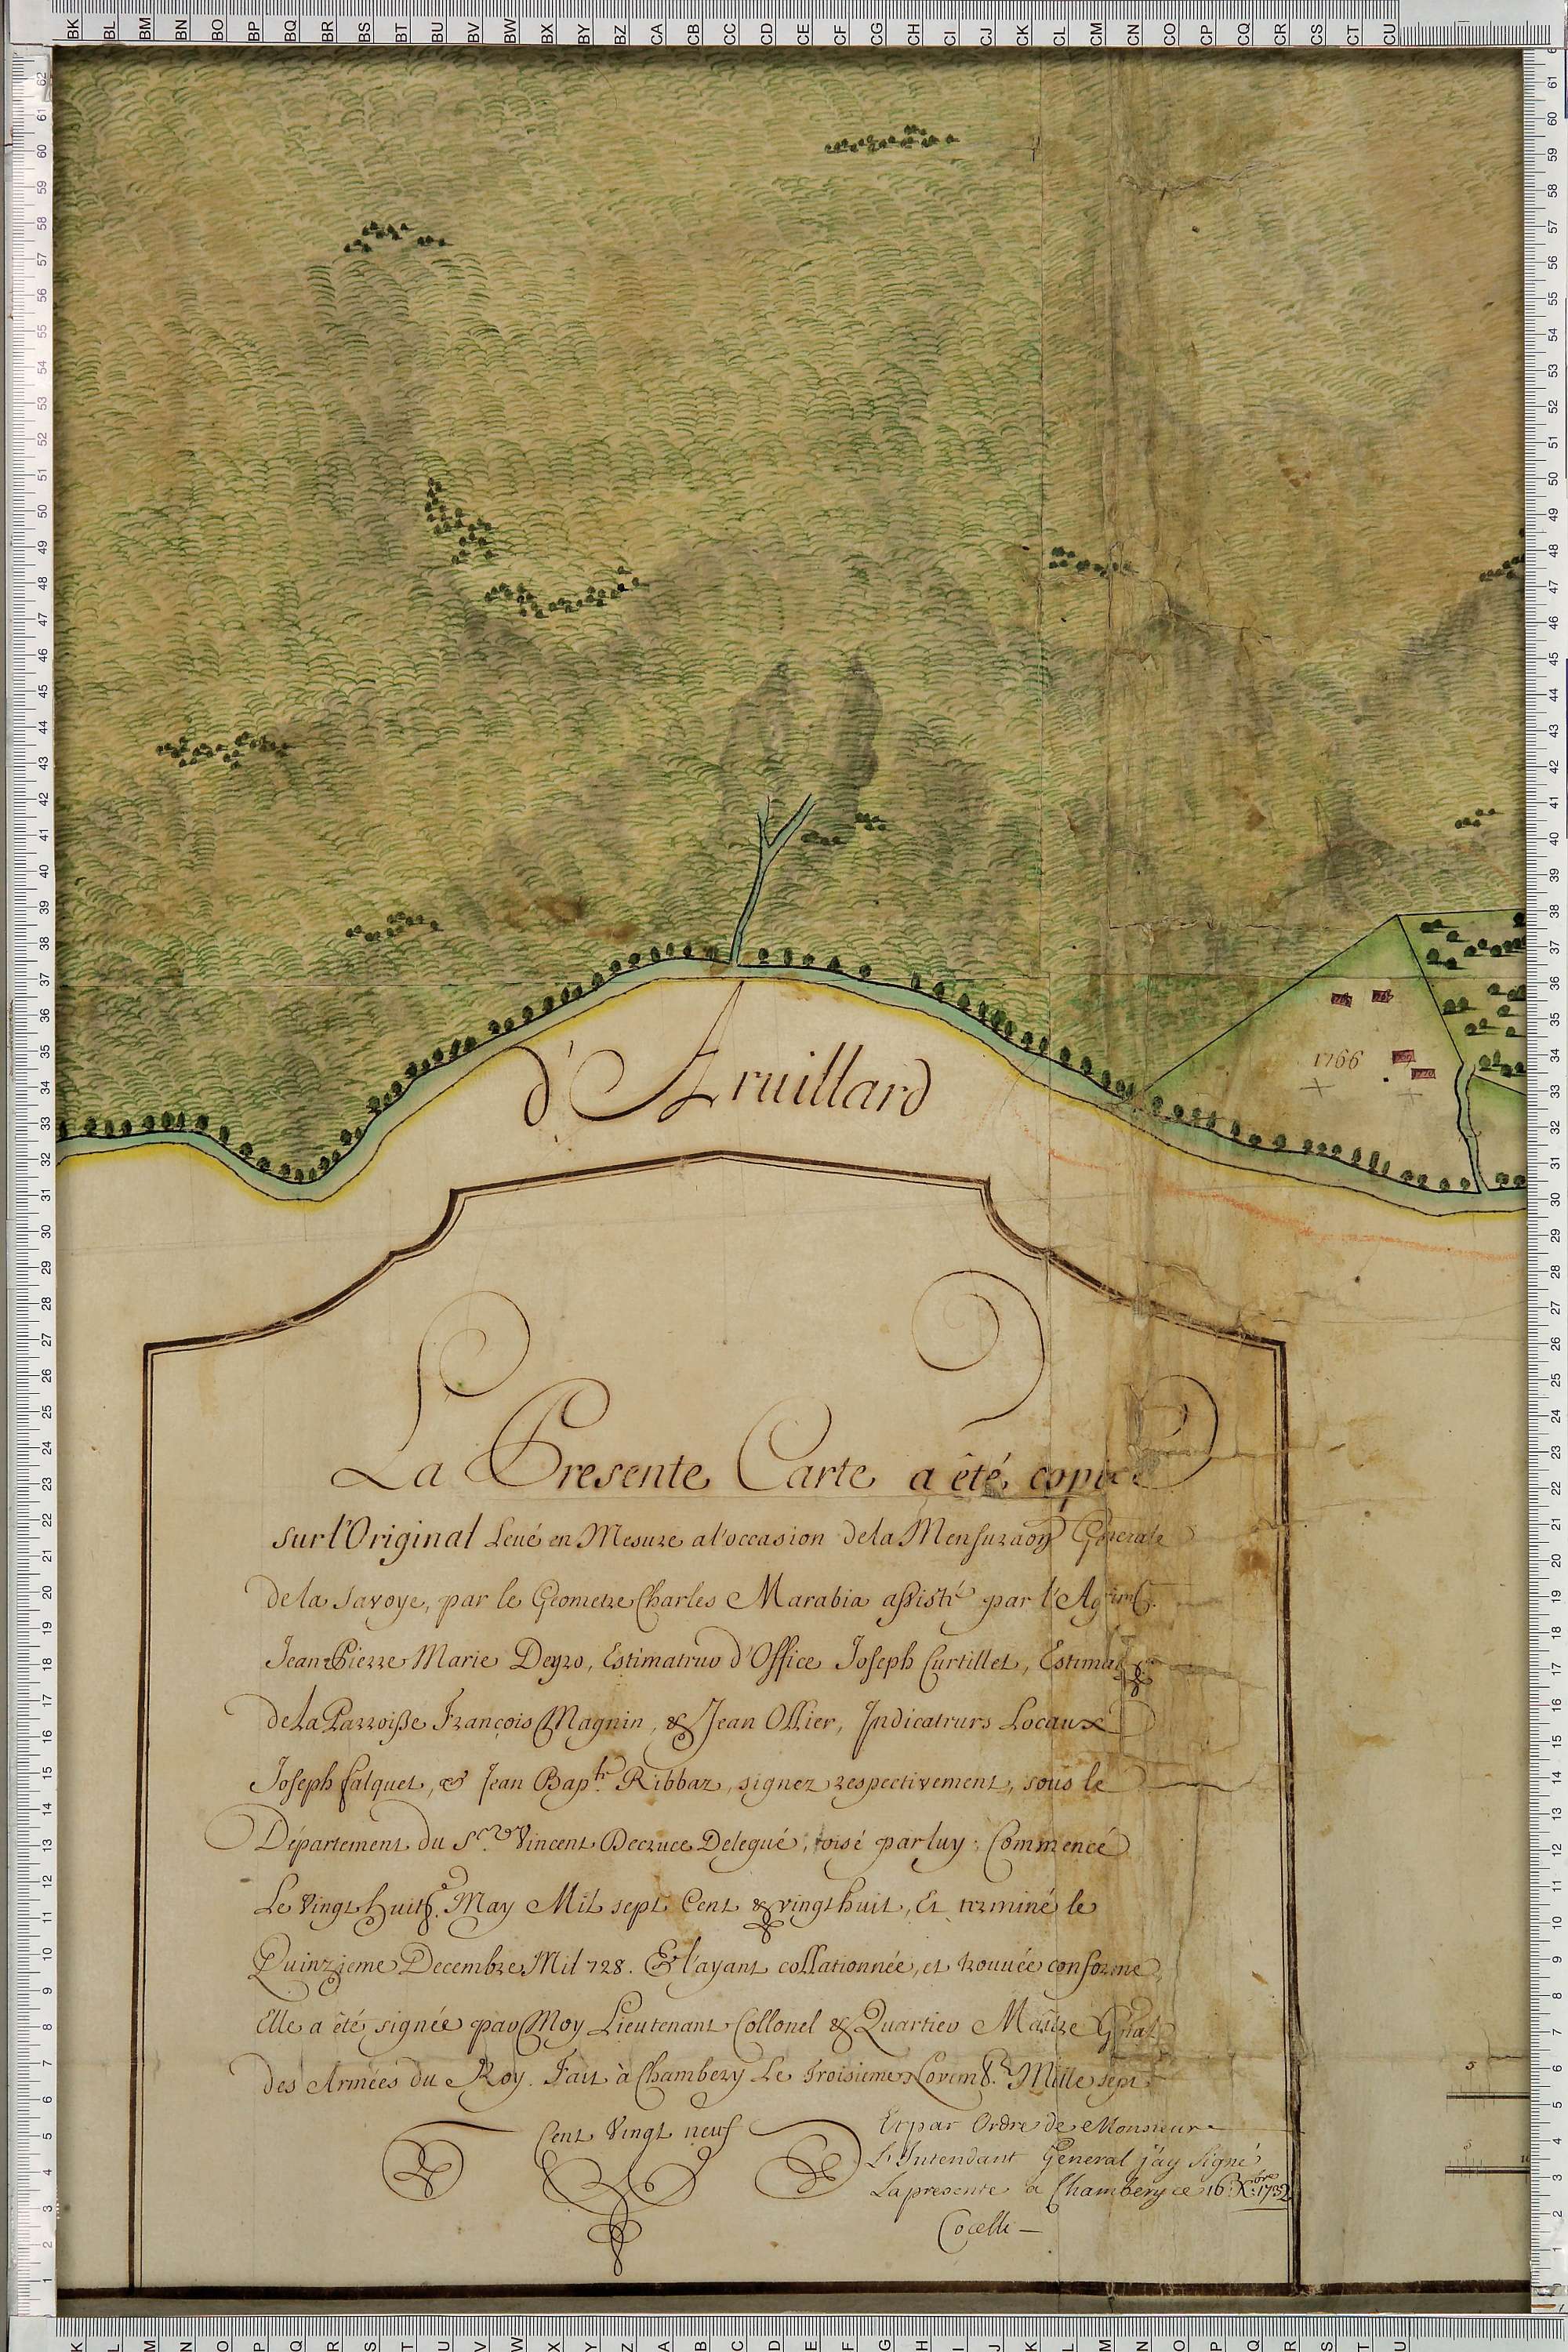 BK BL BM BN BO BP BQ BR BS BT BU BV BW BX BY BZ CA CB CC CD CE CF CG CH CI CJ CK CL CM CN CO CP CQ CR CS CT CU
1766
d'Aruillard
La Presente Carte a êté copiée
sur l'Original Levé en Mesure a l'occasion de la Mensuraõn Generale
de la Savoye, par le Geometre Charles Marabia assisté par l'
Jean Pierre Marie Deyro, Estimateur d'Office Joseph Curtillet, Estimat
de la Parroiße François Magnin, & Jean Ollier, Indicateurs Locaux
Joseph falquet, & Jean Bap.te Ribbaz, signez respectivement, sous le
Département du S.r Vincent Decruce Delegué, visé par luy; Commencé
Le Vingt huit.e May Mil sept Cent & vingt huit, Et terminé le
Quinzieme Decembre Mil 728. Et l'ayant collationnée, et trouvée conforme
Elle a êté signée par Moy Lieutenant Collonel & Quartier Maitre Gñal
des Armées du Roy. Fait à Chambery Le Troisieme Novemb.e Mille sept
Cent Vingt neuf
Et par Ordre de Monsieur
L'Intendant General j'ay signé
La presente a Chambery ce 16: X.bre 1732
Cocelli
5